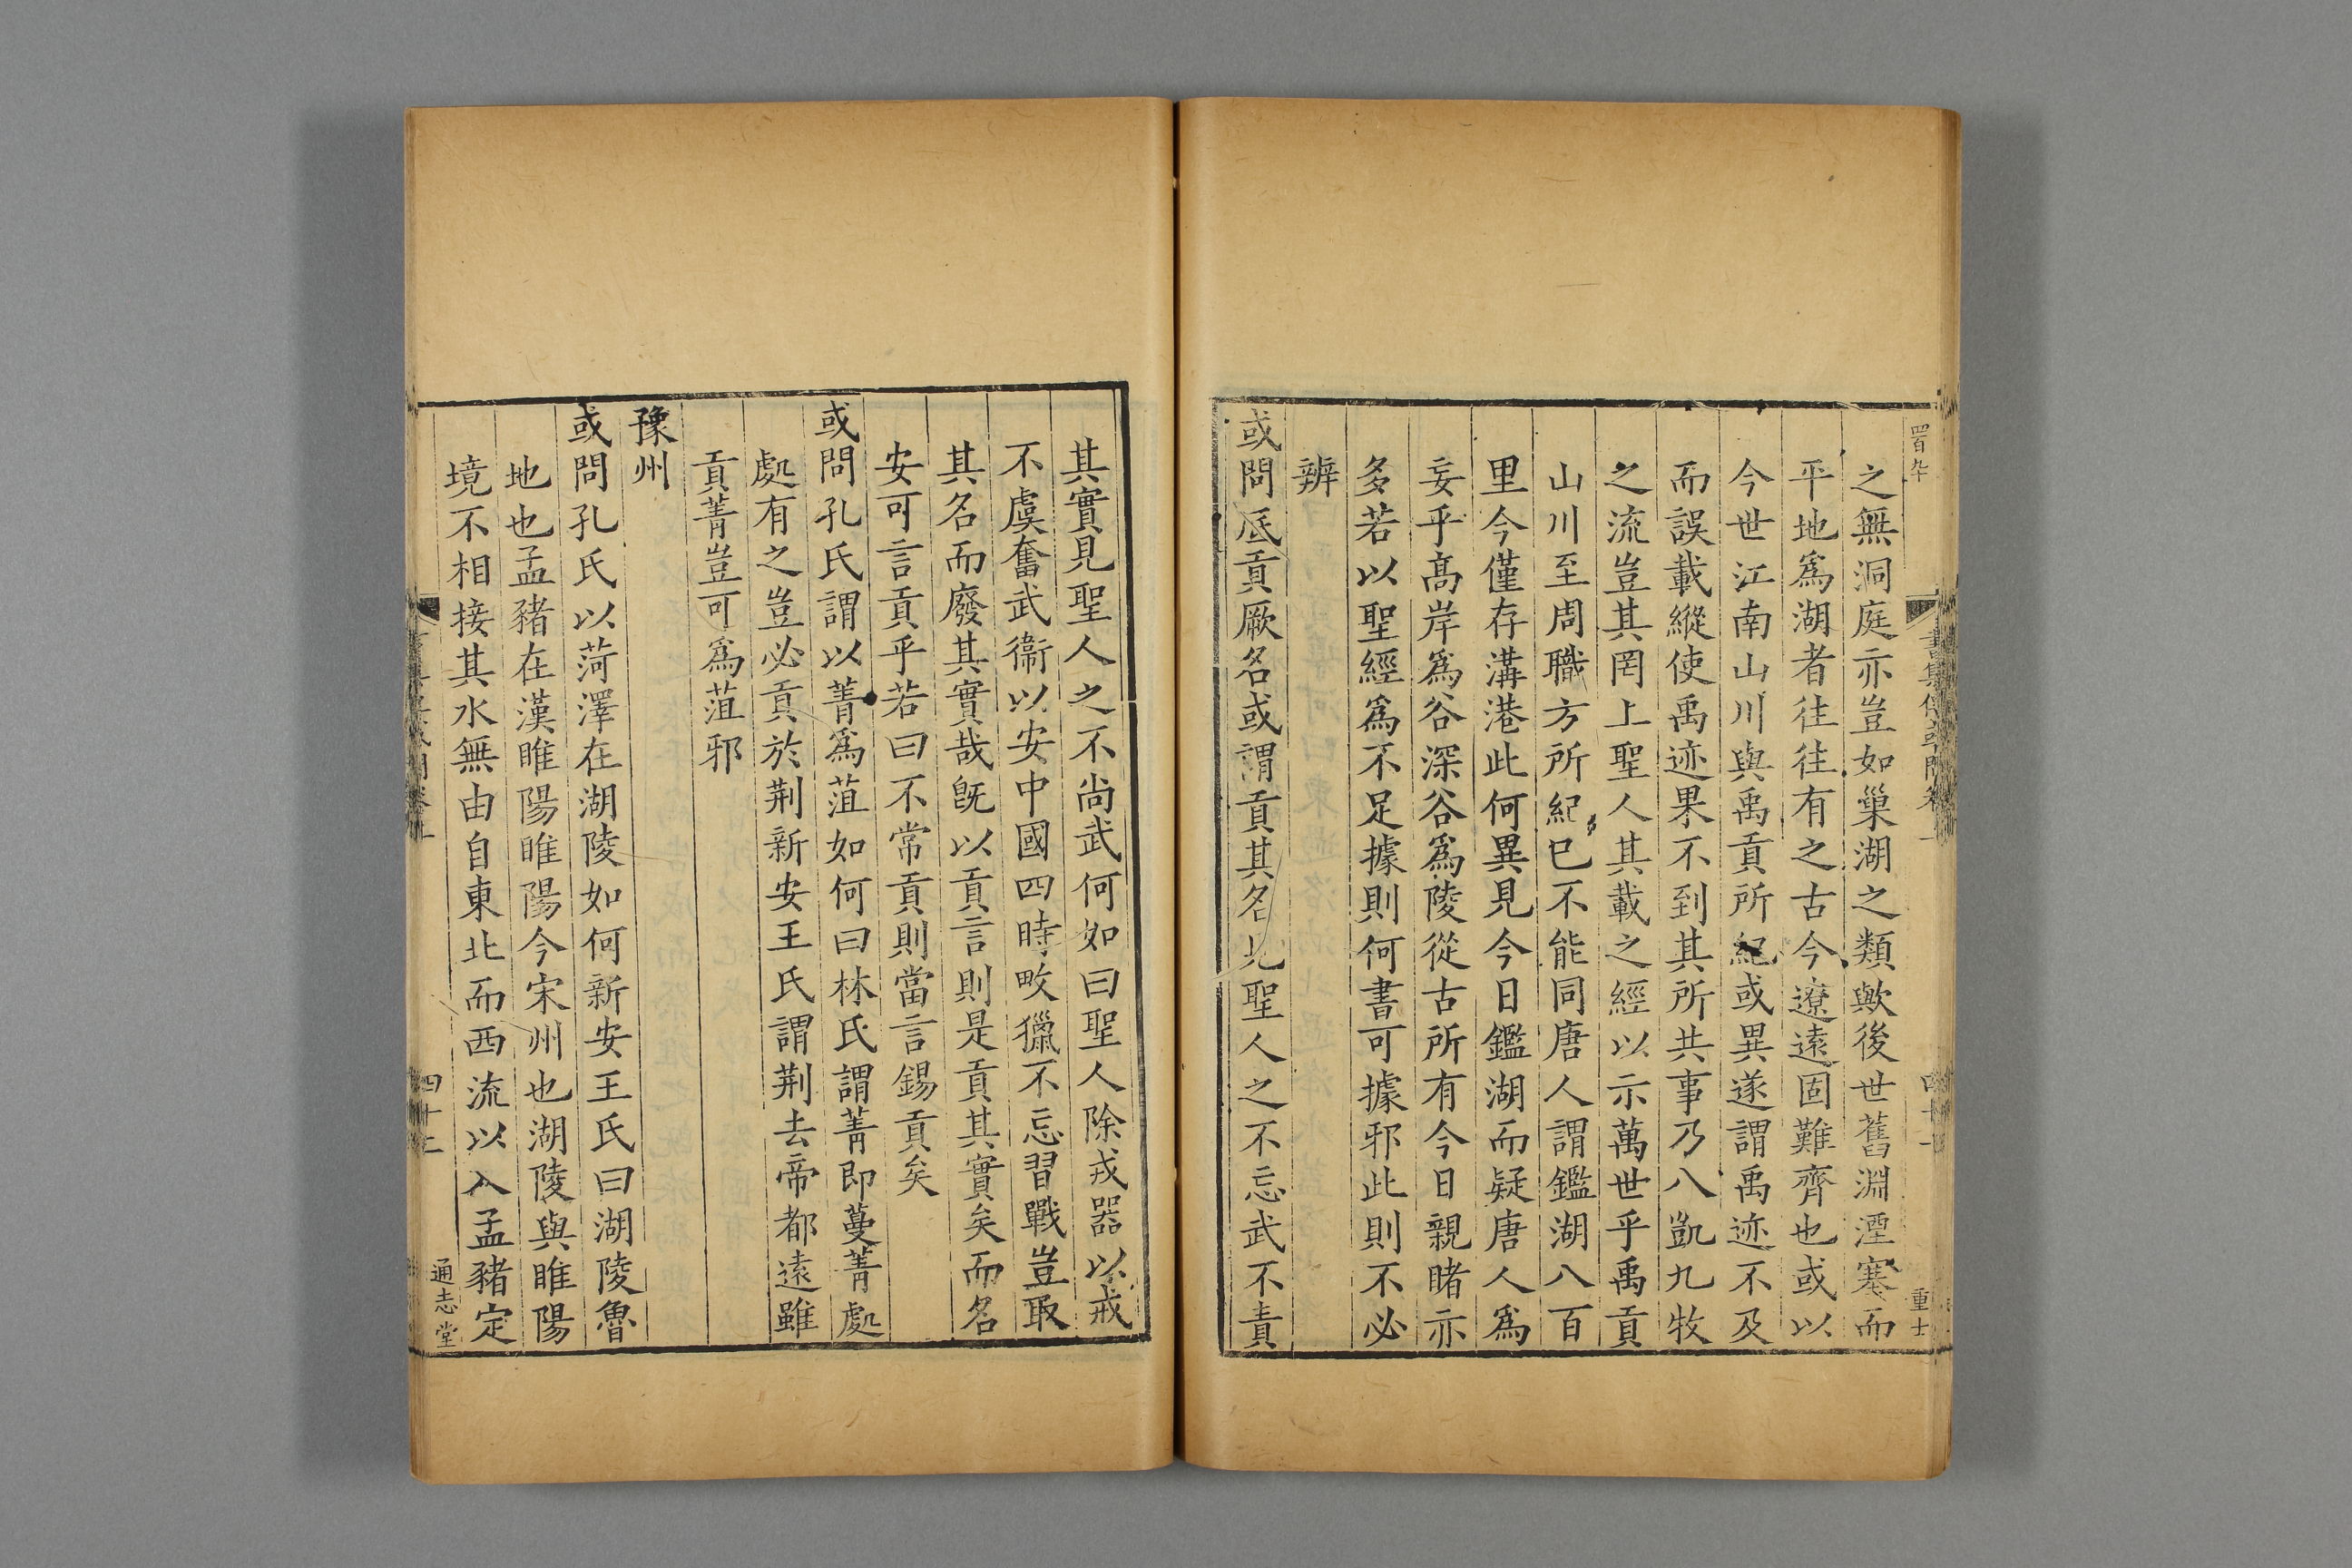 之無洞庭亦豈如巢湖之類歟後世舊淵湮塞而
平地爲湖者往往有之古今遼遠固難齊也或以
今世江南山川與禹貢所紀或異遂謂禹迹不及
而誤載縱使禹迹果不到其所共事乃八凱九牧
之流豈其罔上聖人其載之經以示萬世乎禹貢
山川至周職方所紀已不能同唐人謂鑑湖八百
里今僅存溝港此何異見今日鑑湖而疑唐人爲
妄乎高岸爲谷深谷爲陵從古所有今日親睹亦
多若以聖經爲不足據則何書可據邪此則不必
辨
或問厎貢厥名或謂貢其名此聖人之不忘武不責
其實見聖人之不尚武何如曰聖人除戎器以戒
不虞奮武衞以安中國四時畋獵不忘習戰豈取
其名而廢其實哉旣以貢言則是貢其實矣而名
安可言貢乎若曰不常貢則當言錫貢矣
或問孔氏謂以菁爲菹如何曰林氏謂菁即蔓菁處
處有之豈必貢於荆新安王氏謂荆去帝都遠雖
貢菁豈可爲菹邪
豫州
或問孔氏以菏澤在湖陵如何新安王氏曰湖陵魯
地也孟豬在漢睢陽睢陽今宋州也湖陵與睢陽
境不相接其水無由自東北而西流以入孟豬定
通志堂